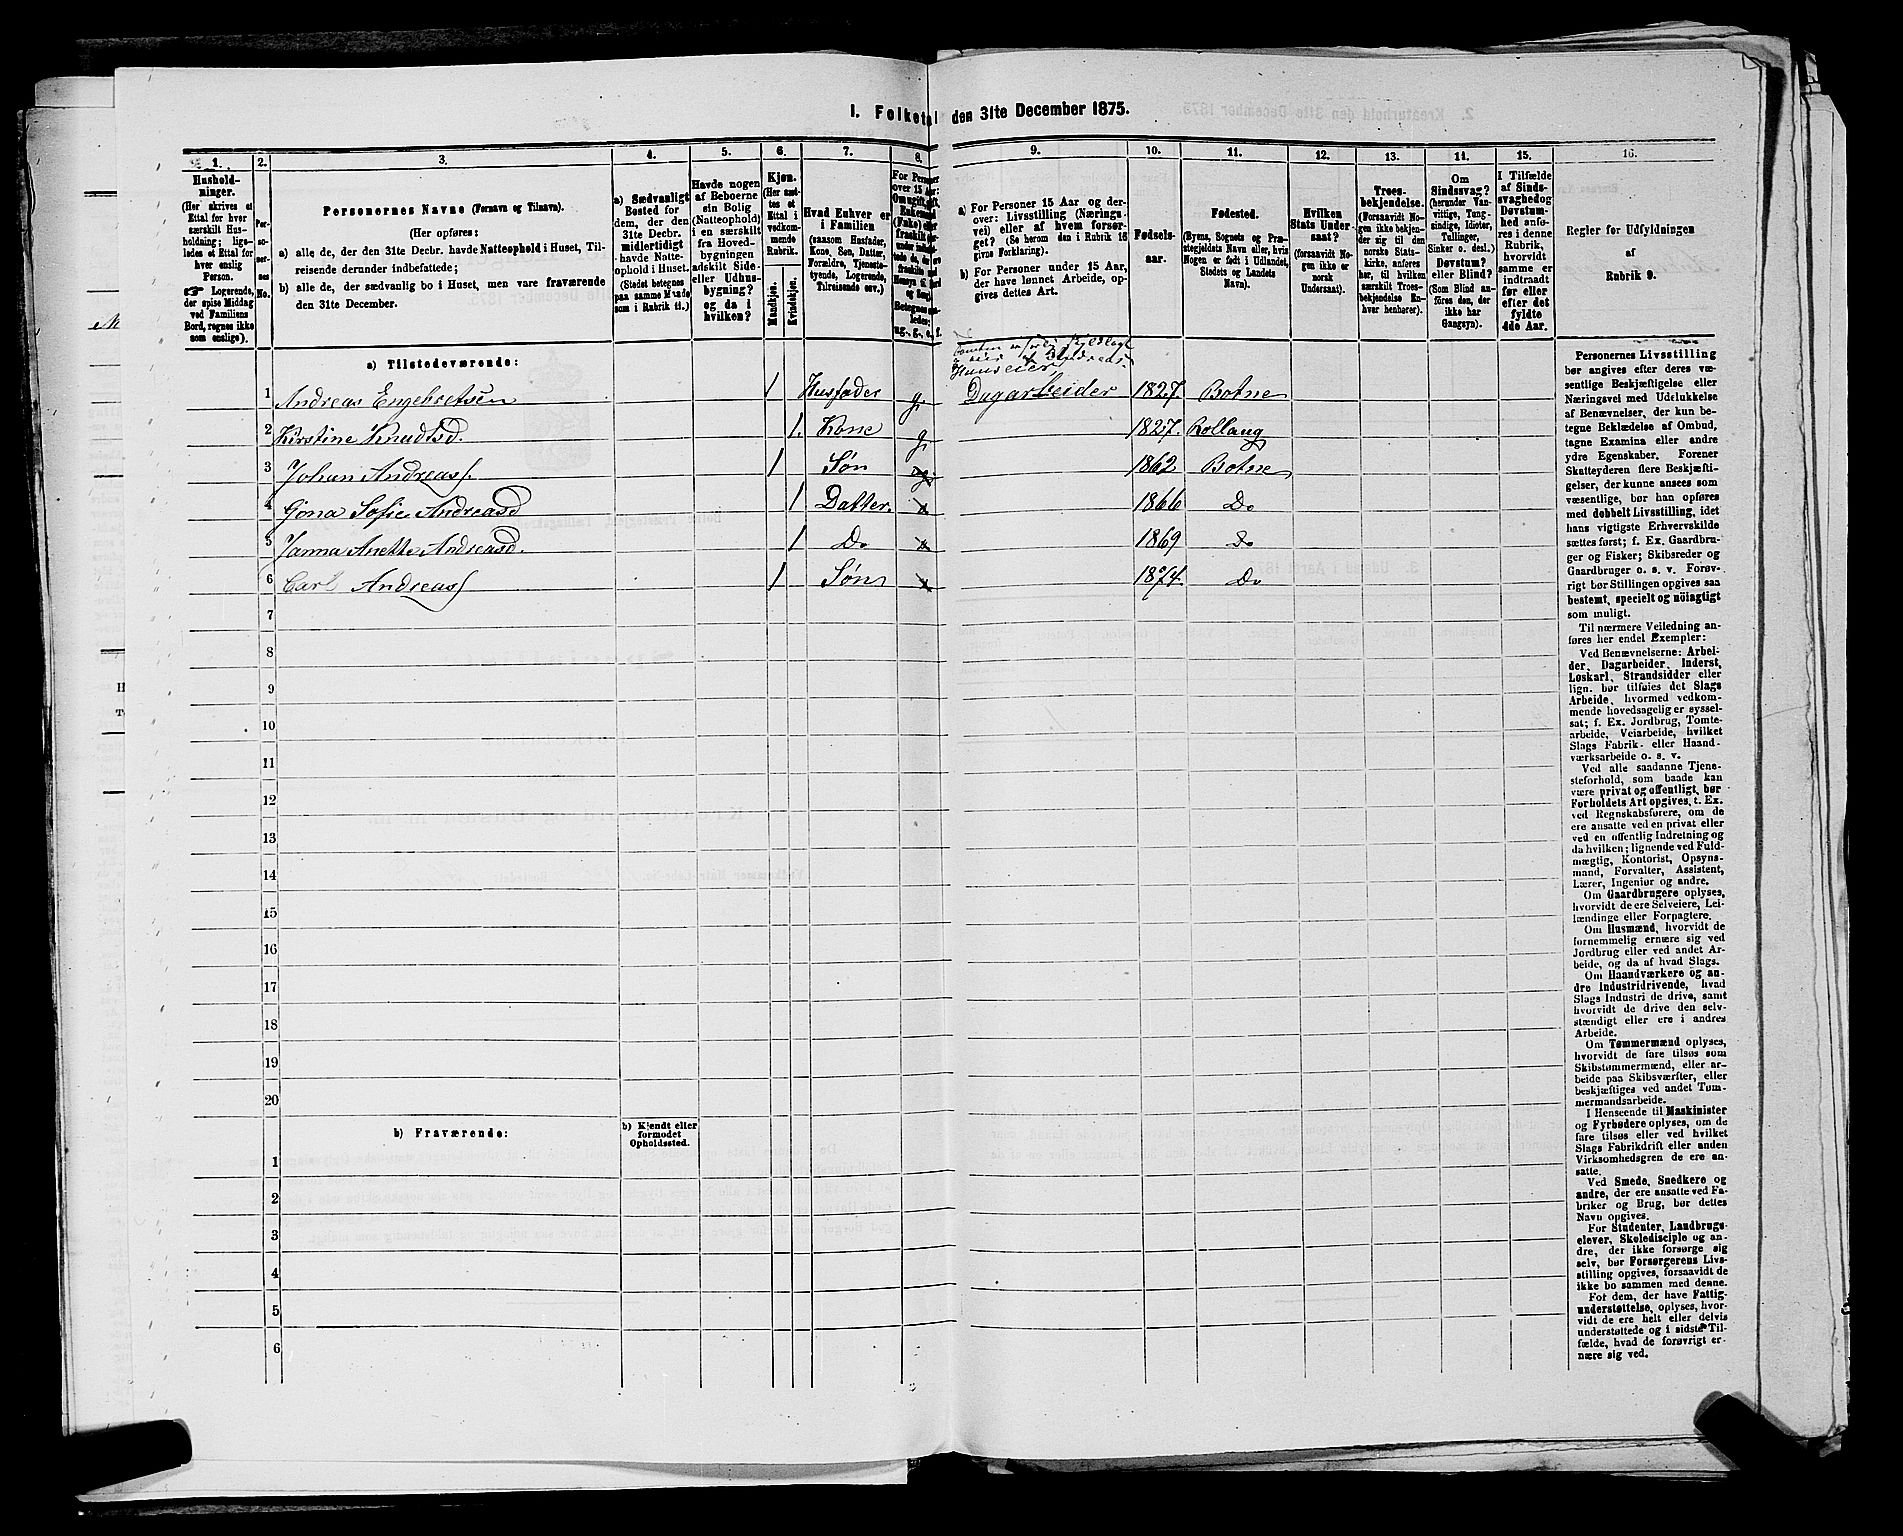 1. Folketal den 31te December 1875.
1. 2. 3. 4. 5. 6. 7. 8. 9. 10. 11. 12. 13. 14. 15. 16.
Hushold-
ninger.
(Her skrives et
Ettal for hver
særskilt Hus-
holdning; lige-
ledes et Ettal for
hver enslig
Person.
☞ Logerende,
der spise Middag
ved Familiens
Bord, regnes ikke
som enslige).
Per-
so-
ner-
nes
No.
Personernes Navne (Fornavn og Tilnavn).
(Her opføres:
a) alle de, der den 31te Decbr. havde Natteophold i Huset, Til-
reisende derunder indbefattede;
b) alle de, der sædvanlig bo i Huset, men vare fraværende
den 31te December.
a) Sædvanligt
Bosted for
dem, der den
31te Decbr.
midlertidigt
havde Natte-
ophold i Huset.
(Stedet betegnes
paa samme Maade
som i Rubrik 11.)
Havde nogen
af Beboerne
sin Bolig
(Natteophold)
i en særskilt
fra Hoved-
bygningen
adskilt Side-
eller Udhus-
bygning?
og da i
hvilken?
Kjøn.
(Her sæt-
tes et
Ettal i
vedkom-
mende
Rubrik.)
Mandkjøn.
Kvindekjøn.
Hvad Enhver er
i Familien
(saasom Husfader,
Kone, Søn, Datter,
Forældre, Tjeneste-
tyende, Logerende,
Tilreisende osv.)
For Personer
over 15 Aar:
ug., g., e., f.
a) For Personer 15 Aar og der-
over: Livsstilling (Nærings-
vei) eller af hvem forsør-
get? (Se herom den i Rubrik 16
givne Forklaring).
b) For Personer under 15 Aar,
der have lønnet Arbeide, op-
gives dettes Art.
Fødsels-
aar.
Fødested.
(Byens, Sognets og Præ-
stegjeldets Navn eller, hvis
Nogen er født i Udlandet,
Stedets og Landets
Navn).
Hvilken
Stats Under-
saat?
(forsaavidt No-
gen ikke er
norsk
Undersaat).
Troes-
bekjendelse.
(Forsaavidt No-
gen ikke bekjen-
der sig til den
norske Stats-
kirke, anføres
her, til hvilken
særskilt Troes-
bekjendelse En-
hver henhører).
Om
Sindssvag?
(herunder Van-
vittige, Tung-
sindige, Idioter,
Tullinger,
Sinker o. desl.)
Døvstum?
eller Blind?
(Som Blind an-
føres den, der
ikke har
Gangsyn).
I Tilfælde
af Sinds-
svaghed og
Døvstum-
hed anfø-
res i denne
Rubrik,
hvorvidt
samme er
indtraadt
før eller
efter det
fyldte
4de Aar.
Regler for Udfyldningen
af
Rubrik 9.
a) Tilstedeværende:
Huuseier
1 Andreas Engebretsen 1 Husfader g. Dagarbeider 1827. Botne
2 Kirstine Knudtsd. 1. Kone g. 1827. Rollaug
3 Johan Andreass. 1 Søn ug. 1862 Botne
4 Gona Sofie Andreasd 1 Datter. 1866 Do
5 Janna Anette Andreasd. 1 Do 1869 Do
6 Carl Andreass 1 Søn 1874. Do
7
8
9
10
11
12
13
14
15
16
17
18
19
20
b) Fraværende:
b) Kjendt eller
formodet
Opholdssted.
1
2
3
4
5
6
Personernes Livsstilling
bør angives efter deres væ-
sentlige Beskjæftigelse eller
Næringsvei med Udelukkelse
af Benævnelser, der kun be-
tegne Beklædelse af Ombud,
tagne Examina eller andre
ydre Egenskaber. Forener
Skatteyderen flere Beskjæfti-
gelser, der kunne ansees som
væsentlige, bør han opføres
med dobbelt Livsstilling, idet
hans vigtigste Erhvervskilde
sættes først; f. Ex. Gaardbru-
ger og Fisker; Skibsreder og
Gaardbruger o. s. v. Forøv-
rigt bør Stillingen opgives saa
bestemt, specielt og nöiagtigt
som muligt.
Til nærmere Veiledning an-
føres her endel Exempler:
Ved Benævnelserne: Arbei-
der, Dagarbeider, Inderst,
Løskarl, Strandsidder eller
lign. bør tilføies det Slags
Arbeide, hvormed vedkom-
mende hovedsagelig er syssel-
sat; f. Ex. Jordbrug, Tomte-
arbeide, Veiarbeide, hvilket
Slags Fabrik- eller Haand-
værksarbeide o. s. v.
Ved alle saadanne Tjene-
steforhold, som baade kan
være privat og offentligt, bør
Forholdets Art opgives, t. Ex.
ved Regnskabsførere, om de
ere ansatte ved en privat eller
ved en offentlig Indretning og
da hvilken; lignende ved Fuld-
mægtig, Kontorist, Opsyns-
mand, Forvalter, Assistent,
Lærer, Ingeniør og andre.
Om Gaardbrugere oplyses,
hvorvidt de ere Selveiere, Lei-
lændinge eller Forpagtere.
Om Husmænd, hvorvidt de
fornemmelig ernære sig ved
Jordbrug eller ved andet Ar-
beide, og da af hvad Slags.
Om Haandværkere og an-
dre Industridrivende, hvad
Slags Industri de drive, samt
hvorvidt de drive den selv-
stændigt eller ere i andres
Arbeide.
Om Tømmermænd oplyses,
hvorvidt de fare tilsøs som
Skibstømmermænd, eller ar-
beide paa Skibsværfter, eller
beskjæftiges ved andet Tøm-
mermandsarbeide.
I Henseende til Maskinister
og Fyrbødere oplyses, om de
fare tilsøs eller ved hvilket
Slags Fabrikdrift eller anden
Virksomhedsgren de ere an-
satte.
Ved Smede, Snedkere og
andre, der ere ansatte ved Fa-
briker og Brug, bør dettes
Navn opgives.
For Studenter, Landbrugs-
elever, Skoledisciple og an-
dre, der ikke forsørge sig
selv, bør Forsørgerens Livs-
stilling opgives, forsaavidt de
ikke bo sammen med denne.
For dem, der have Fattig-
understøttelse, oplyses, hvor-
vidt de ere helt eller delvis
understøttede og i sidste Til-
fælde, hvad de forøvrigt er-
nære sig ved.